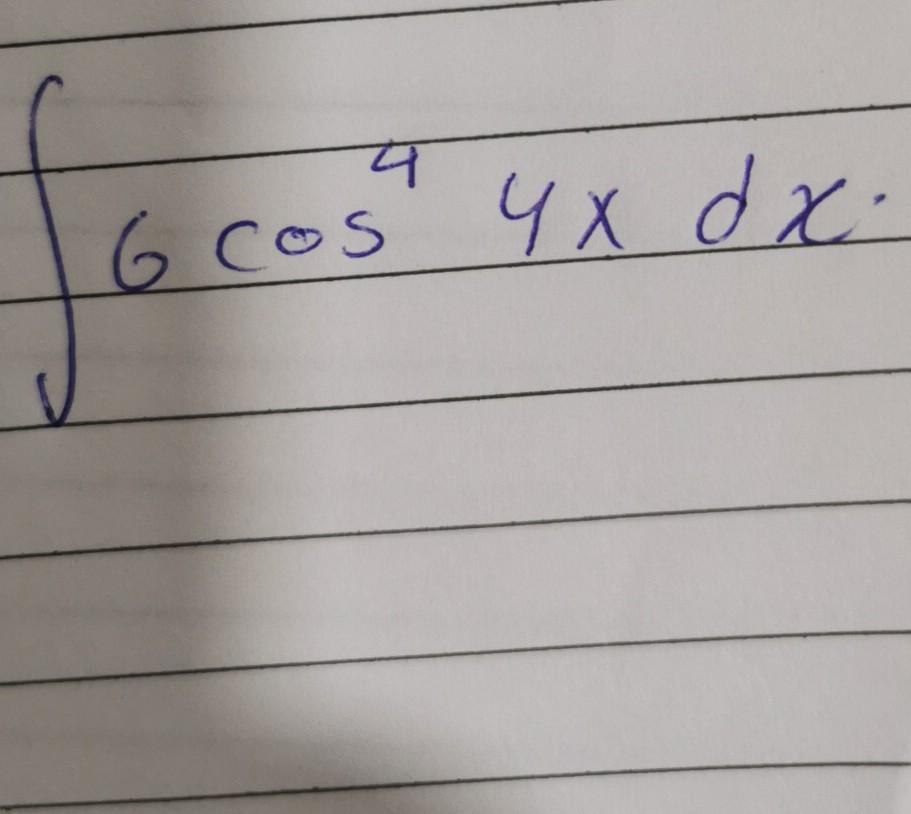 ∫ 6 cos⁴ 4x dx.